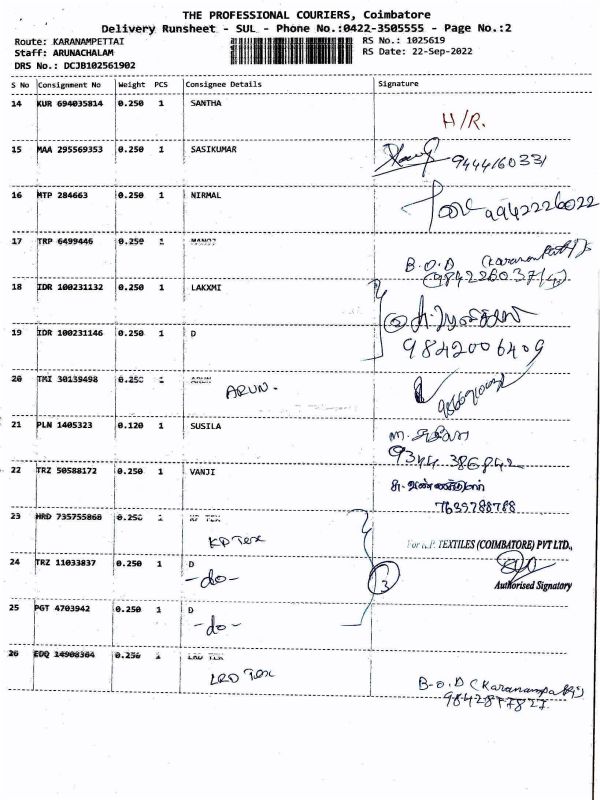 THE PROFESSIONAL COURIERS, Coimbatore
Delivery Runsheet - SUL - Phone No.:0422-3505555 - Page No.:2
Route: KARANAMPETTAI
RS No.: 1025619
Staff: ARUNACHALAM
RS Date: 22-Sep-2022
DRS No.: DCJB102561902
S No Consignment No Weight PCS Consignee Details Signature
14 KUR 694035814 0.250 1 SANTHA
H/R.
15 MAA 295569353 0.250 1 SASIKUMAR
9444160331
16 MTP 284663 0.250 1 NIRMAL
9942226022
17 TRP 6499446 0.250 1 MANOJ
B.O.D
18 IDR 100231132 0.250 1 LAKXMI
19 IDR 100231146 0.250 1 D
9842006409
20 TMI 30139498 0.250 1 ARUN
ARUN.
21 PLN 1405323 0.120 1 SUSILA
9344 386842
22 TRZ 50588172 0.250 1 VANJI
7639788788
23 HRD 735755868 0.250 1 KP TEX
KP Tex
For K.P. TEXTILES (COIMBATORE) PVT LTD.,
24 TRZ 11033837 0.250 1 D
-do-
3
Authorised Signatory
25 PGT 4703942 0.250 1 D
-do-
26 EDQ 14908364 0.250 1 LRD TEX
LRD Tex
B-O.D